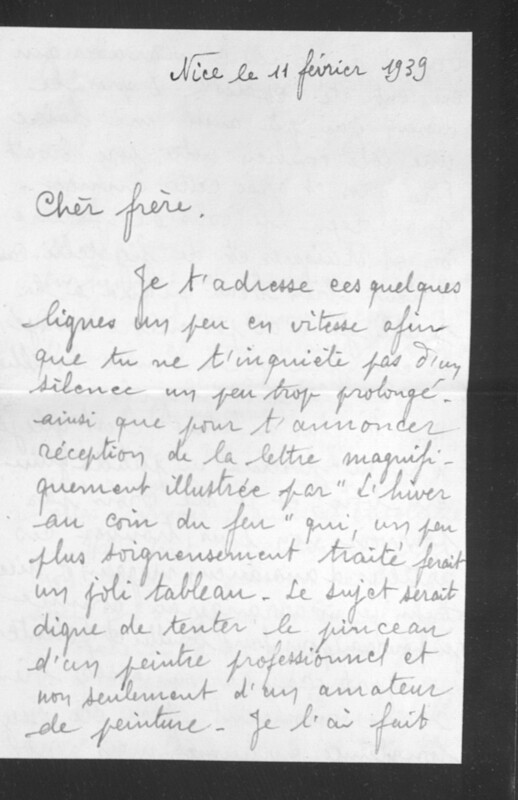 Nice le 11 février 1939
Chèr frère.
Je t'adresse ces quelques
lignes un peu en vitesse afin
que tu ne t'inquiète pas d'un
silence un peu trop prolongé -
ainsi que pour t'annoncer
réception de la lettre magnifi-
quement illustrée par "L'hiver
au coin du feu" qui, un peu
plus soigneusement traité ferait
un joli tableau - Le sujet serait
digne de tenter le pinceau
d'un peintre professionnel et
non seulement d'un amateur
de peinture - Je l'ai fait